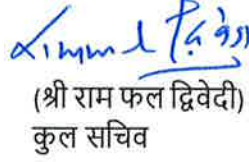 (श्री राम फल द्विवेदी)
कुल सचिव